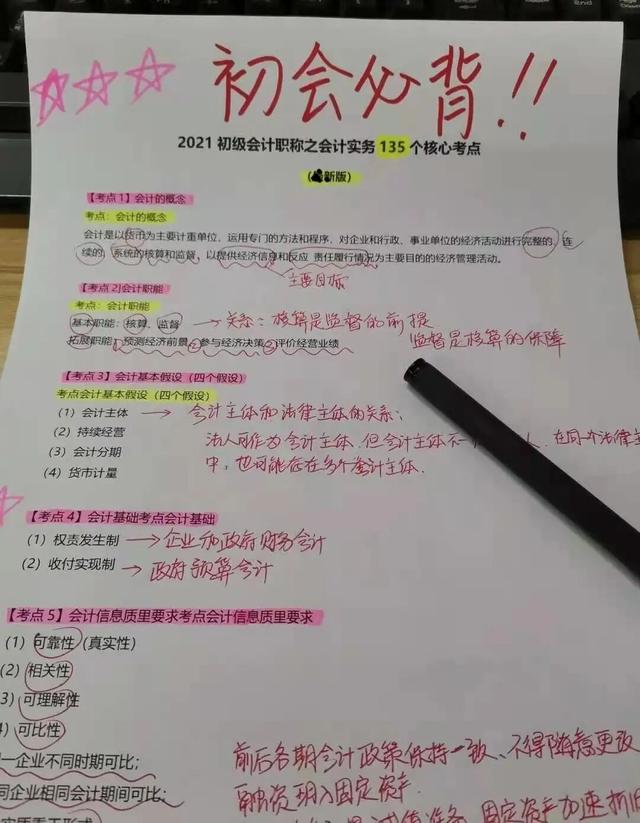 初会必背!!
2021 初级会计职称之会计实务 135 个核心考点
新版)
【考点 1】会计的概念
考点：会计的概念
会计是以货币为主要计重单位，运用专门的方法和程序，对企业和行政、事业单位的经济活动进行完整的，连
续的，系统的核算和监督，以提供经济信息和反应 责任履行情况为主要目的的经济管理活动。
主要目标
【考点 2]会计职能
考点：会计职能
基本职能：核算、监督 → 关系：核算是监督的前提
监督是核算的保障
拓展职能：预测经济前景 参与经济决策 评价经营业绩
【考点 3】会计基本假设（四个假设）
考点会计基本假设（四个假设）
（1）会计主体 → 会计主体和法律主体的关系：
（2）持续经营 法人可作为会计主体，但会计主体不一 人，在同一法律主
（3）会计分期 中，也可能存在多个会计主体.
（4）货币计量
【考点 4】会计基础考点会计基础
（1）权责发生制 → 企业和政府财务会计
（2）收付实现制 → 政府预算会计
【考点 5】会计信息质里要求考点会计信息质里要求
（1）可靠性（真实性）
(2）相关性
3）可理解性
）可比性
一企业不同时期可比； 前后各期会计政策保持一致、不得随意更改
同企业相同会计期间可比； 融资租入固定资产
实质重于形式 减值准备、固定资产加速折旧